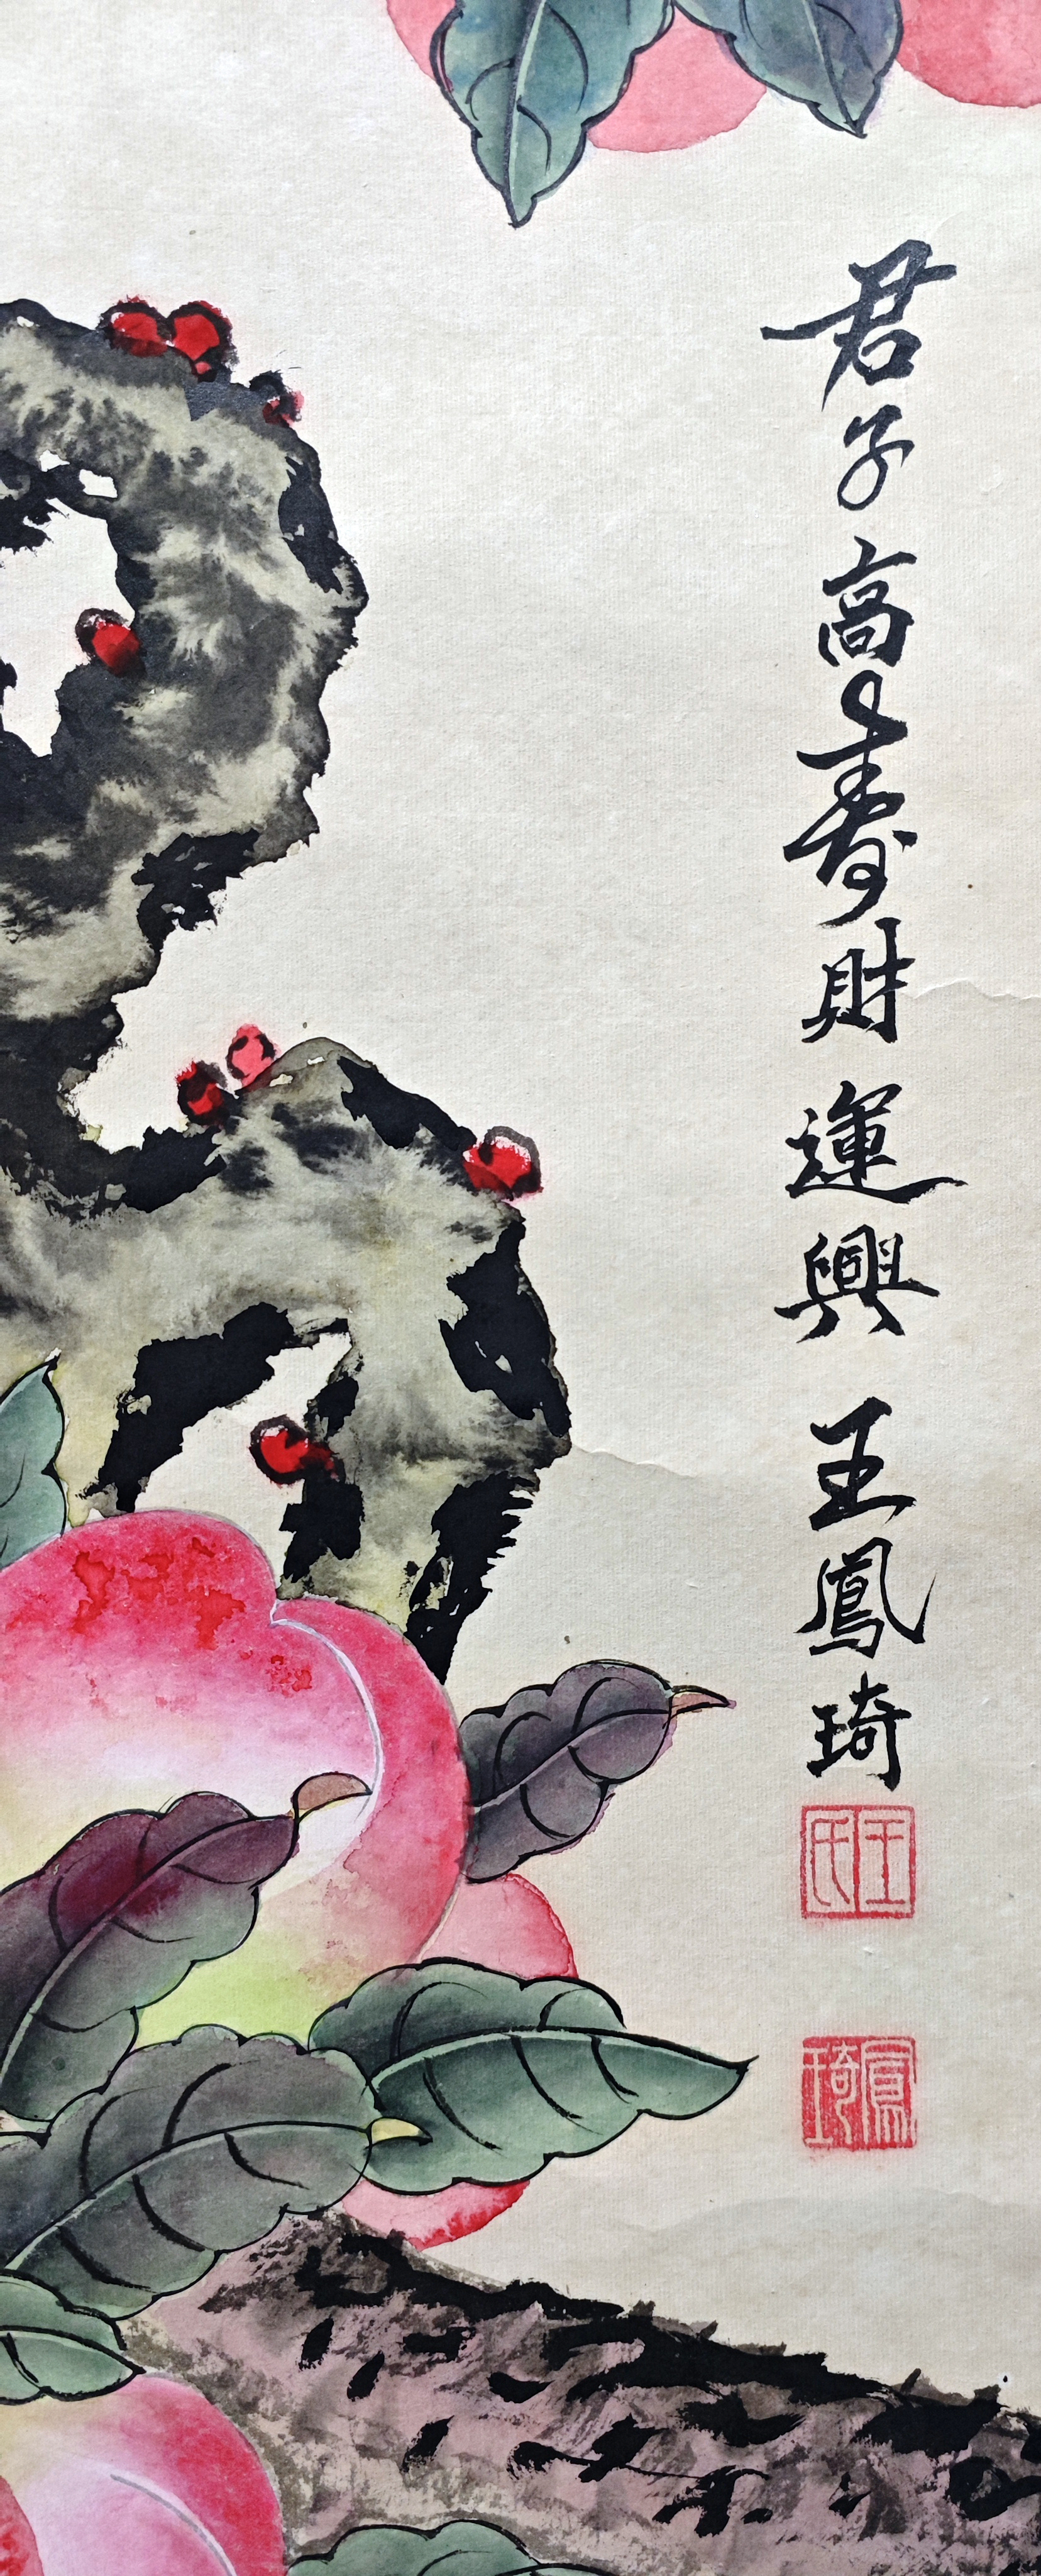 君子高壽財運興 王鳳琦
王氏
鳳琦